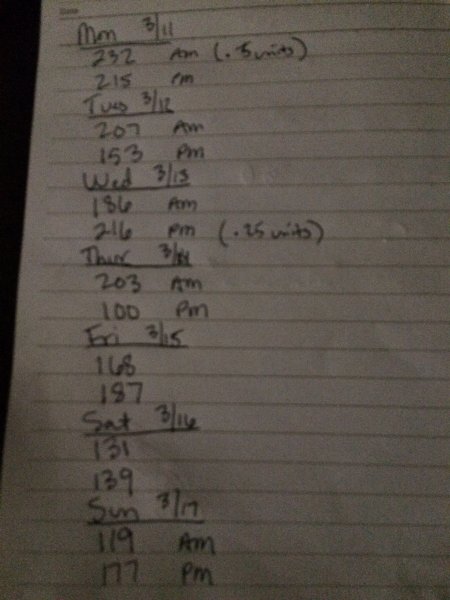 Mon 3/11
232 Am (.5 units)
215 Pm
Tues 3/12
207 Am
153 Pm
Wed 3/13
186 Am
216 pm (.25 units)
Thur 3/14
203 Am
100 Pm
Fri 3/15
168
187
Sat 3/16
131
139
Sun 3/17
119 Am
177 Pm